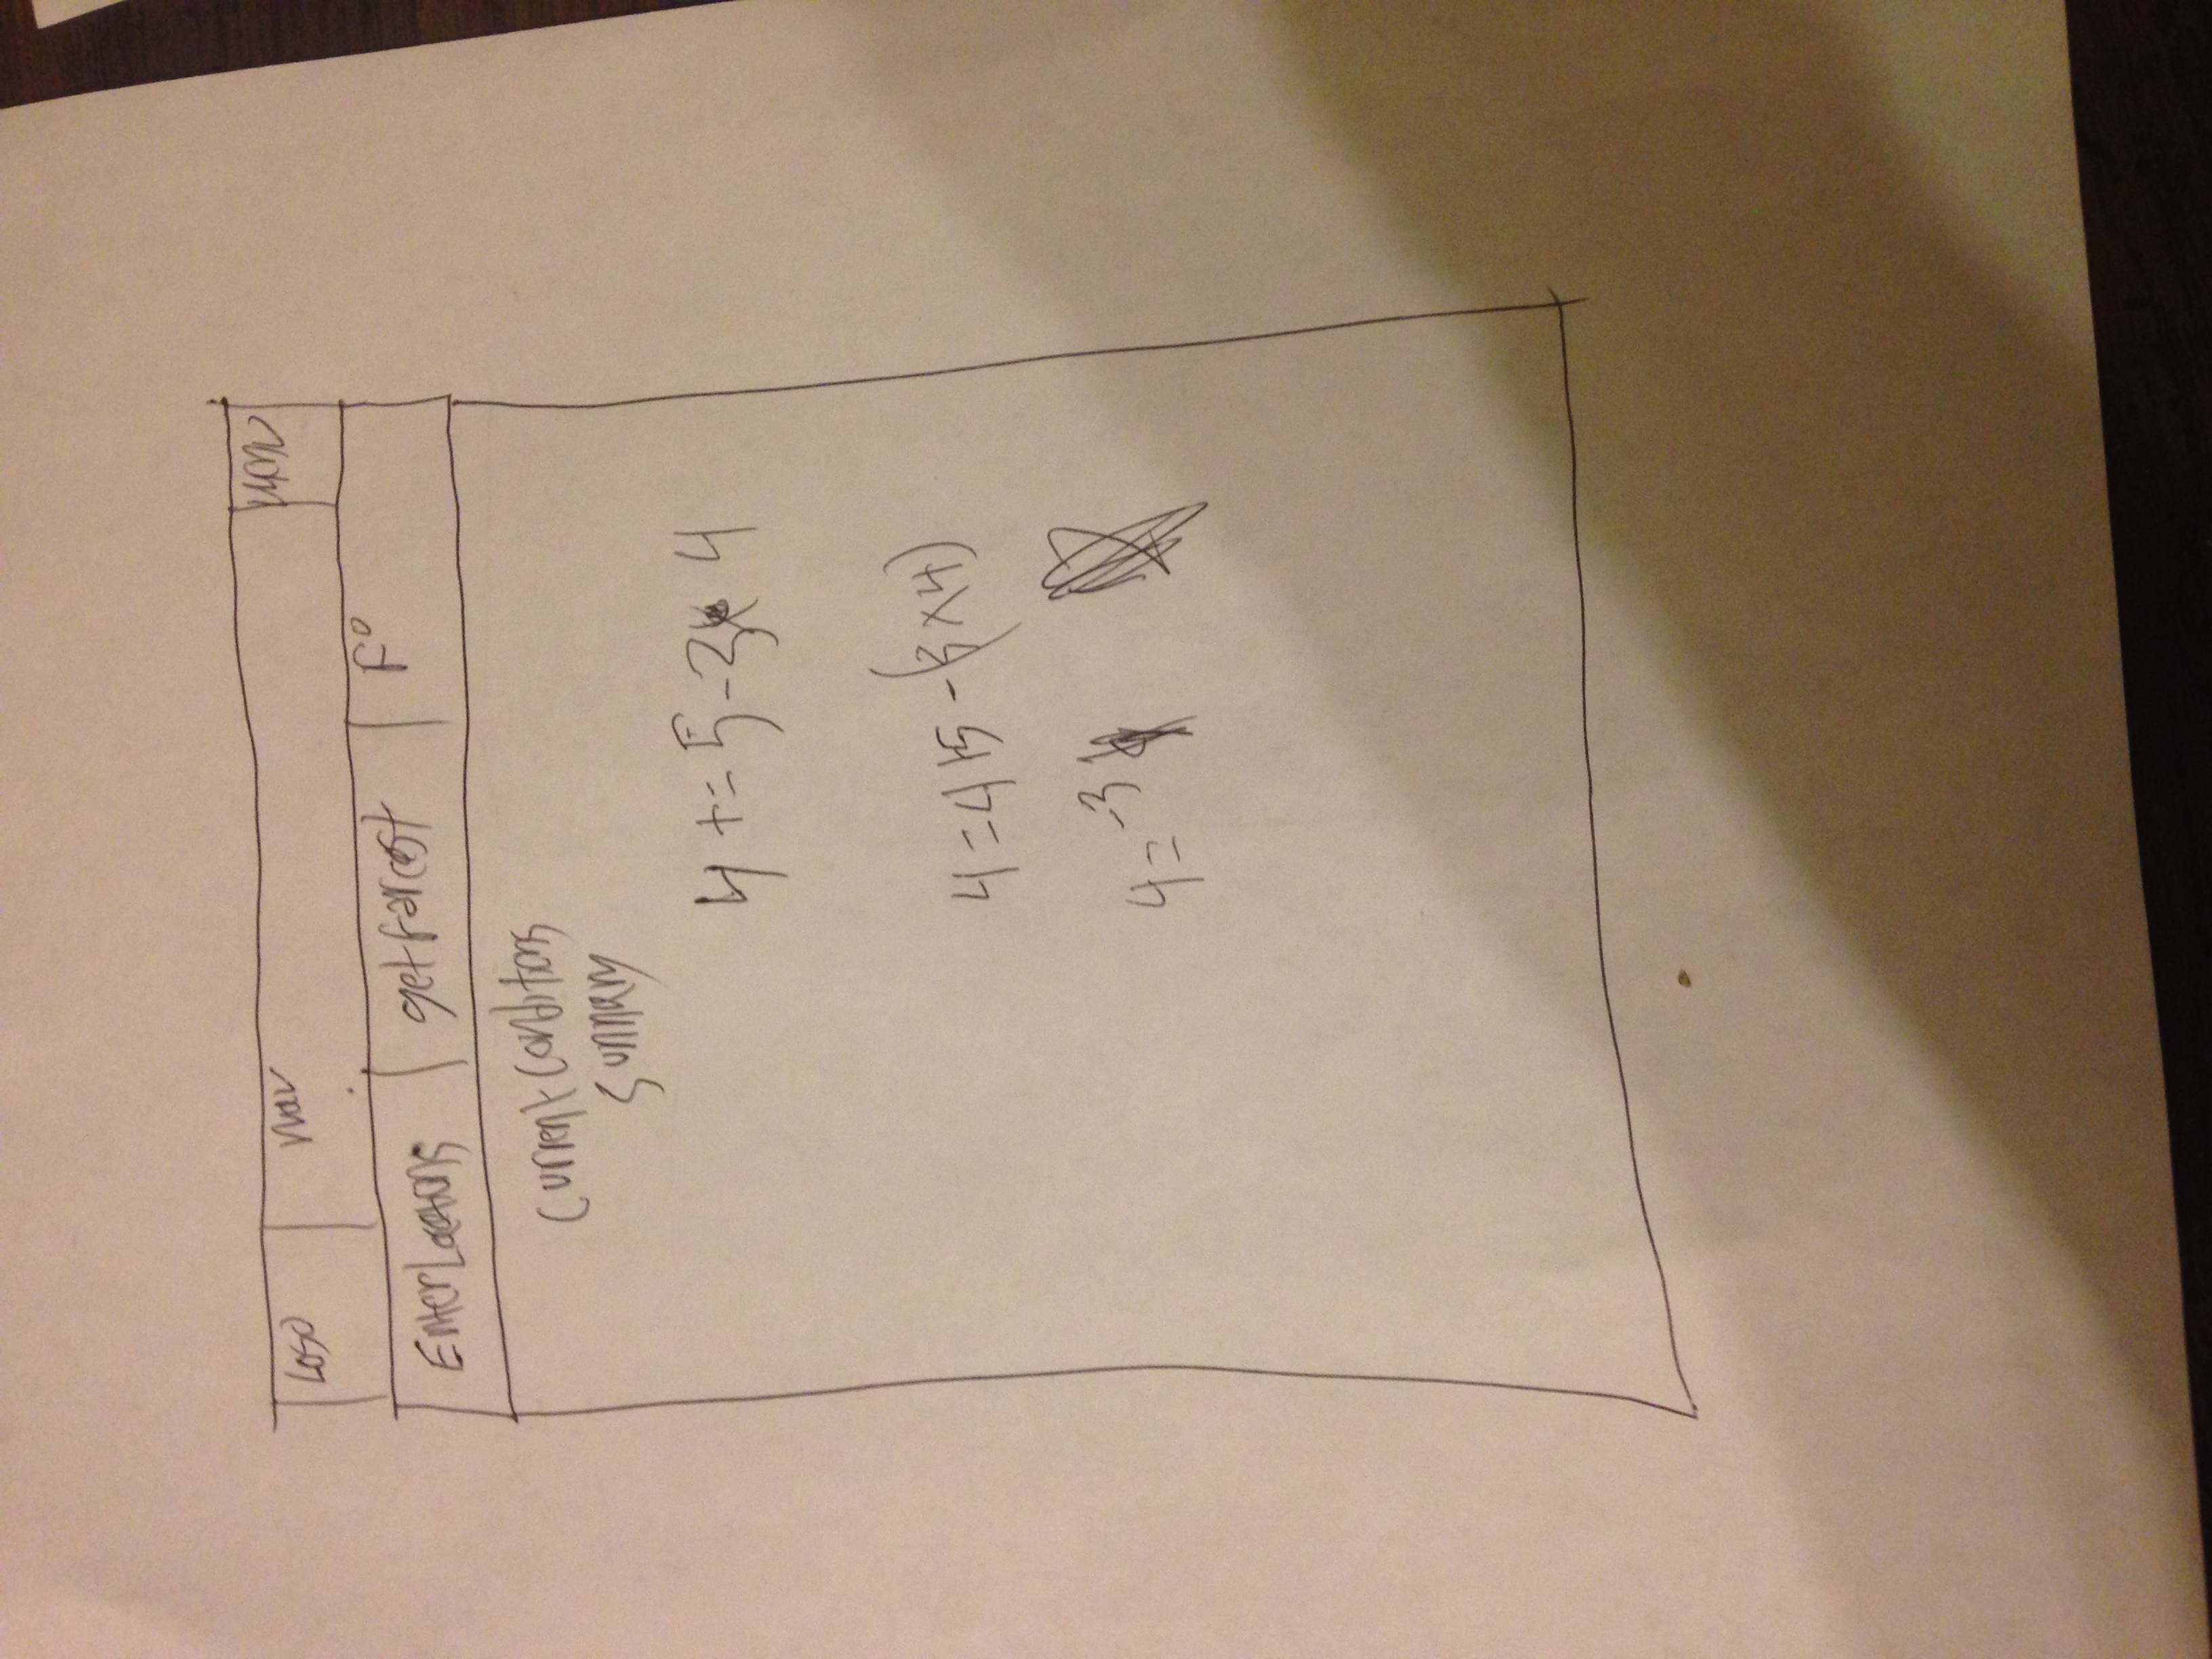 Logo Nav
Enter Locations get forcast F°
Current Conditions
Summary
4 += 5 - 3 * 4
4 = 4 + 5 - (3 × 4)
4 = -3